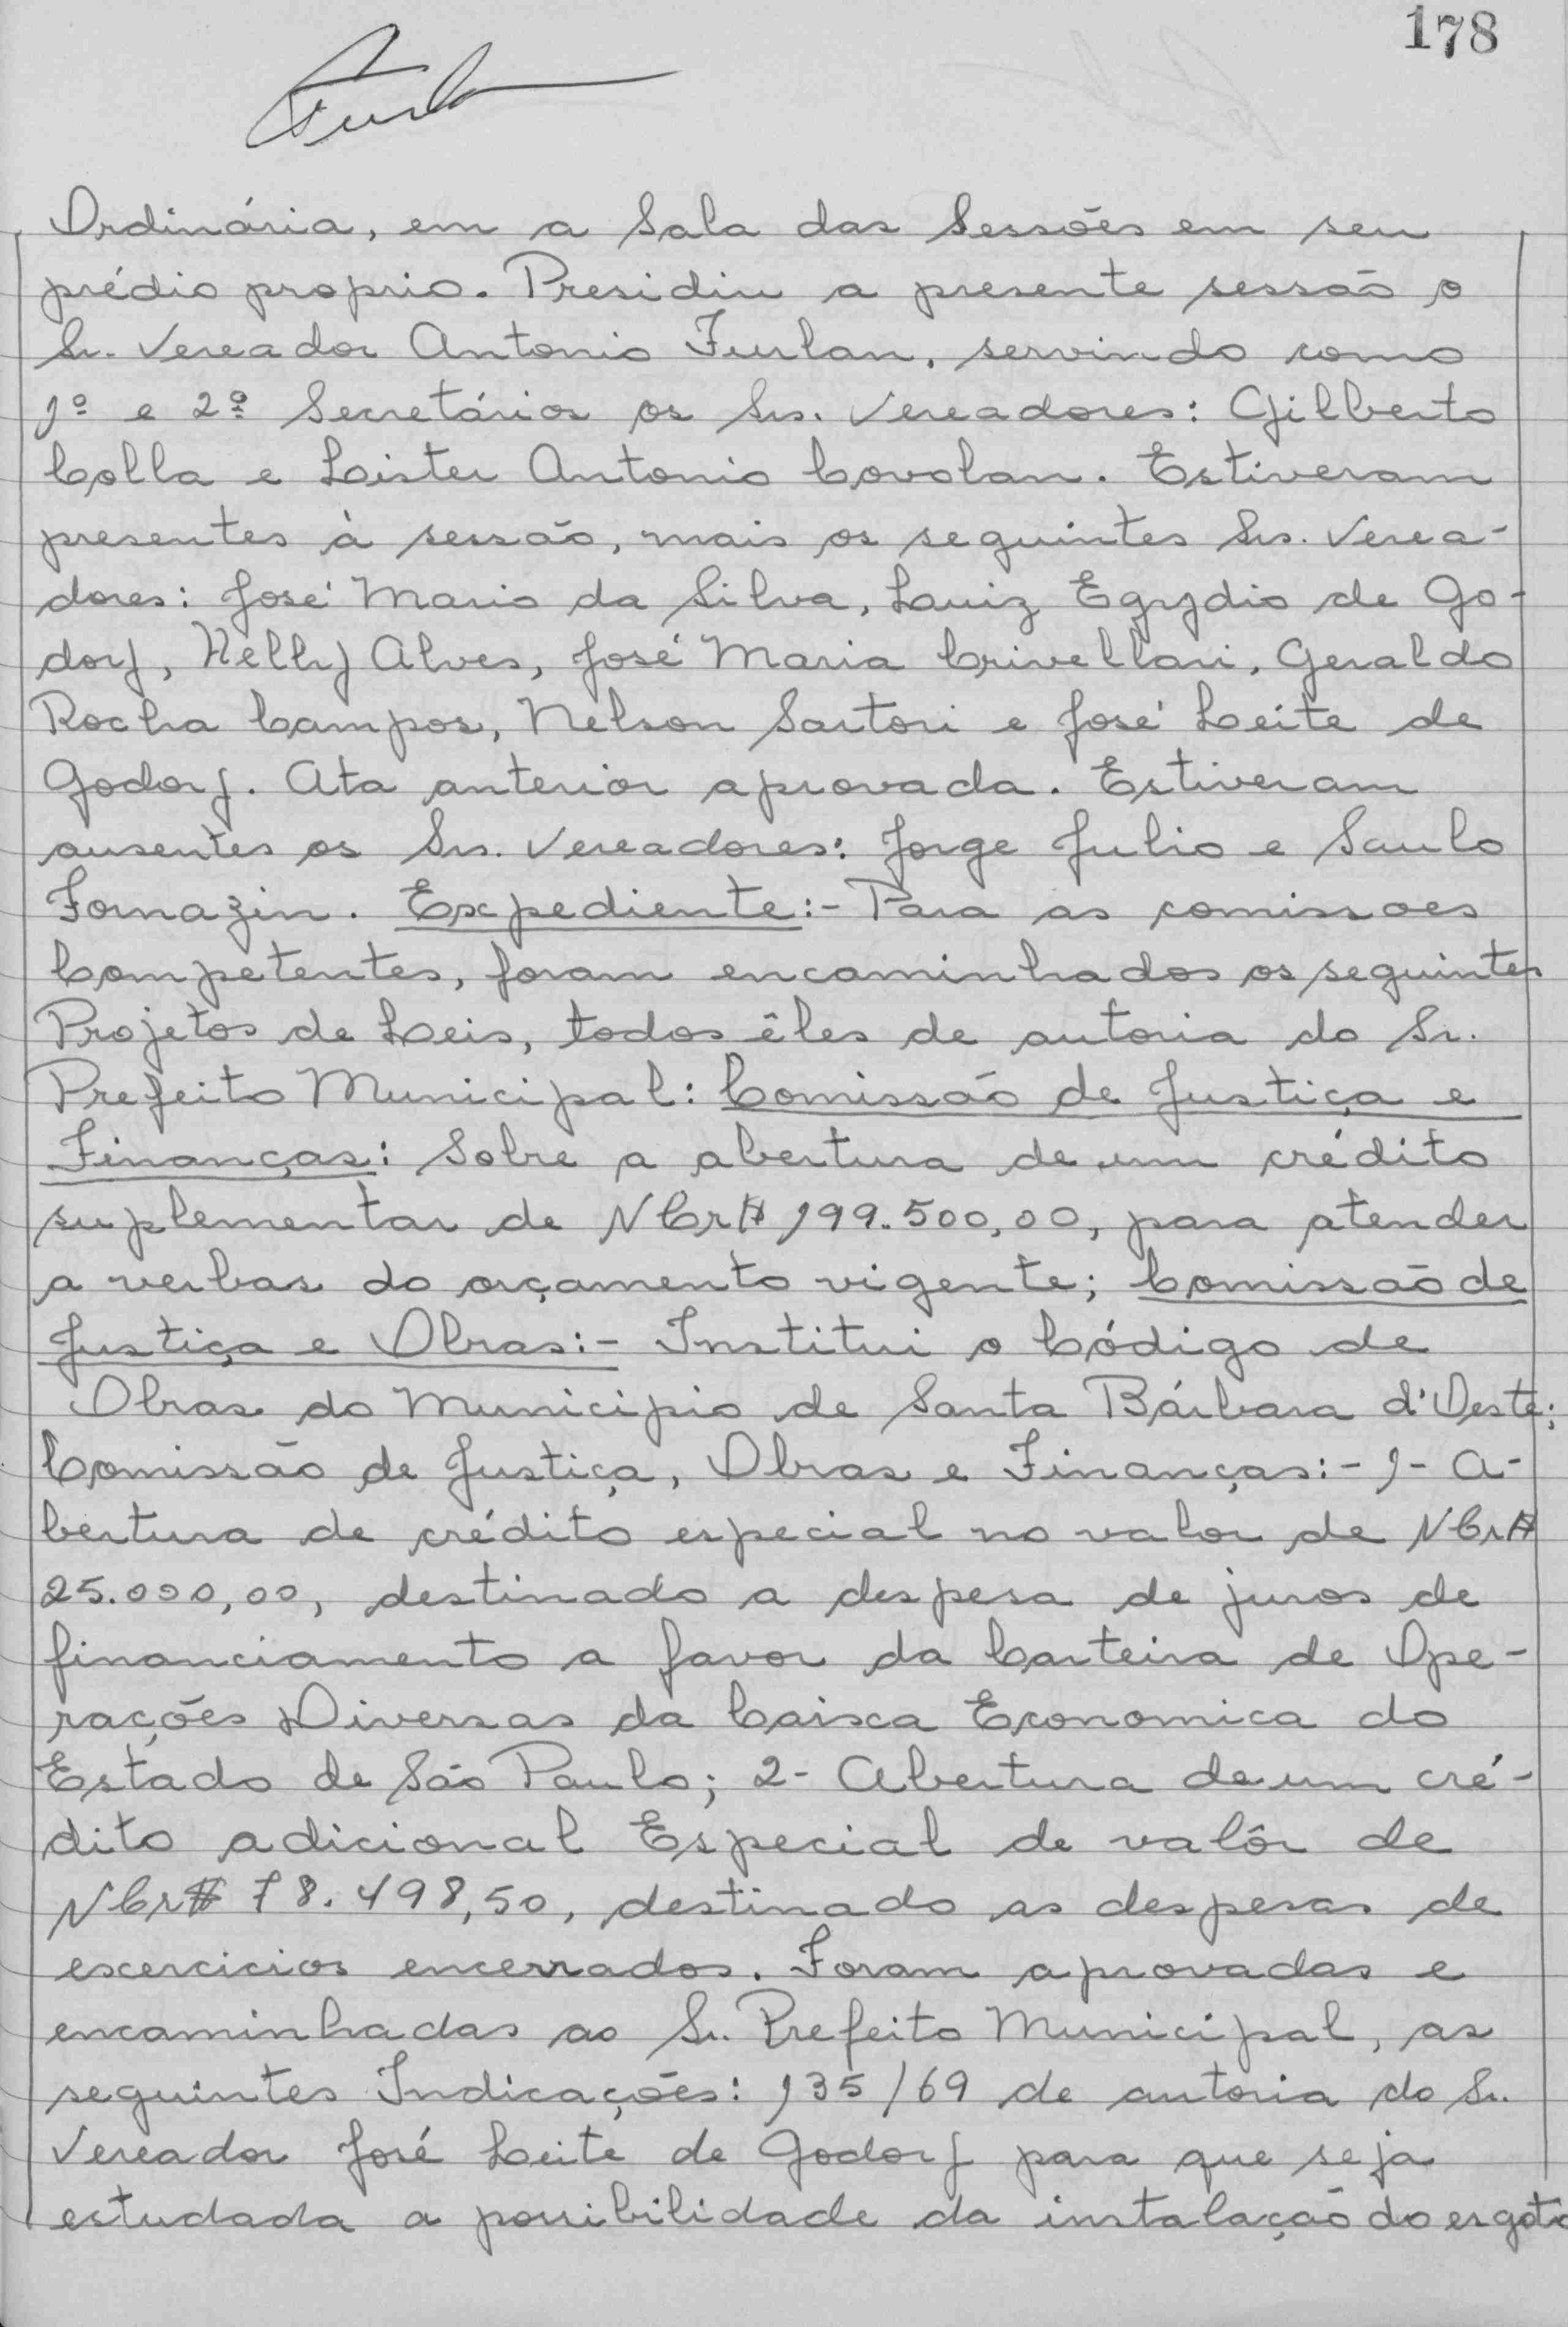 178
Furlan
Ordinária, em a Sala das Sessões em seu
prédio proprio. Presidiu a presente sessão o
Sr. Vereador Antonio Furlan, servindo como
1º e 2º Secretários os Srs. Vereadores: Gilberto
Colla e Lister Antonio Covolan. Estiveram
presentes à sessão, mais os seguintes Srs. Verea-
dores: José Mario da Silva, Luiz Egydio de Go-
doy, Nelly Alves, José Maria Crivellari, Geraldo
Rocha Campos, Nelson Sartori e José Leite de
Godoy. Ata anterior aprovada. Estiveram
ausentes os Srs. Vereadores: Jorge Julio e Saulo
Fornazin. Expediente:- Para as comissoes
Competentes, foram encaminhados os seguintes
Projetos de Leis, todos êles de autoria do Sr.
Prefeito Municipal: Comissão de Justiça e
Finanças: Sobre a abertura de um crédito
suplementar de NCr$ 199.500,00, para atender
a verbas do orçamento vigente; Comissão de
Justiça e Obras:- Institui o Código de
Obras do Municipio de Santa Bárbara d'Oeste;
Comissão de Justiça, Obras e Finanças:- 1- A-
bertura de crédito especial no valor de NCr$
25.000,00, destinado a despesa de juros de
financiamento a favor da Carteira de Ope-
rações Diversas da Caixa Economica do
Estado de São Paulo; 2- Abertura de um cré-
dito adicional Especial de valôr de
NCr$ 78.498,50, destinado as despesas de
exercicios encerrados. Foram aprovadas e
encaminhadas ao Sr. Prefeito Municipal, as
seguintes Indicações: 135/69 de autoria do Sr.
Vereador José Leite de Godoy para que seja
estudada a possibilidade da instalação do esgoto